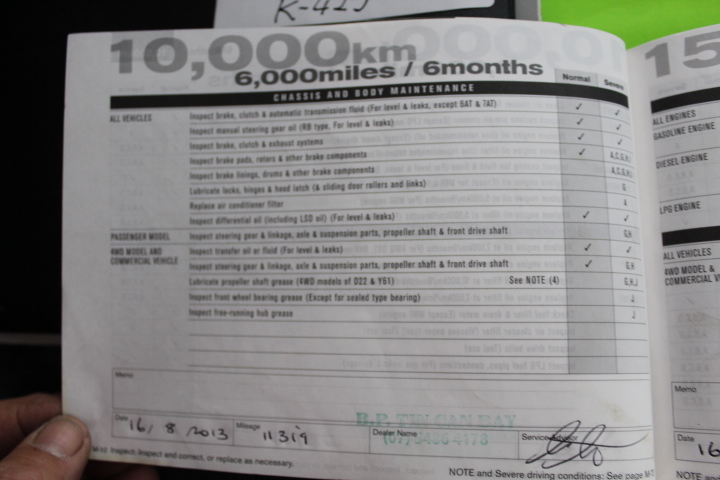 K-425
10,000km
6,000miles / 6months
Normal Severe
CHASSIS AND BODY MAINTENANCE
ALL VEHICLES Inspect brake, clutch & automatic transmission fluid (For level & leaks, except 6AT & 7AT) ✓ ✓
Inspect manual steering gear oil (RB type, For level & leaks) ✓ ✓
Inspect brake, clutch & exhaust systems ✓ ✓
Inspect brake pads, rotors & other brake components ✓ A,C,G,H,I
Inspect brake linings, drums & other brake components A,C,G,H,I
Lubricate locks, hinges & hood latch (& sliding door rollers and links) G
Replace air conditioner filter A
Inspect differential oil (including LSD oil) (For level & leaks) ✓ ✓
PASSENGER MODEL Inspect steering gear & linkage, axle & suspension parts, propeller shaft & front drive shaft G,H
4WD MODEL AND COMMERCIAL VEHICLE Inspect transfer oil or fluid (For level & leaks) ✓ ✓
Inspect steering gear & linkage, axle & suspension parts, propeller shaft & front drive shaft ✓ G,H
Lubricate propeller shaft grease (4WD models of D22 & Y61) See NOTE (4) G,H,J
Inspect front wheel bearing grease (Except for sealed type bearing) J
Inspect free-running hub grease J
Memo
B.P. TIN CAN BAY
Date 16/ 8 /2013 Mileage 11319 Dealer Name (07) 5486 4178 Service Advisor
M-12 Inspect: Inspect and correct, or replace as necessary.
NOTE and Severe driving conditions: See page M-
15
ALL ENGINES
GASOLINE ENGINE
DIESEL ENGINE
LPG ENGINE
ALL VEHICLES
4WD MODEL &
COMMERCIAL
Memo
Date
16
NOTE